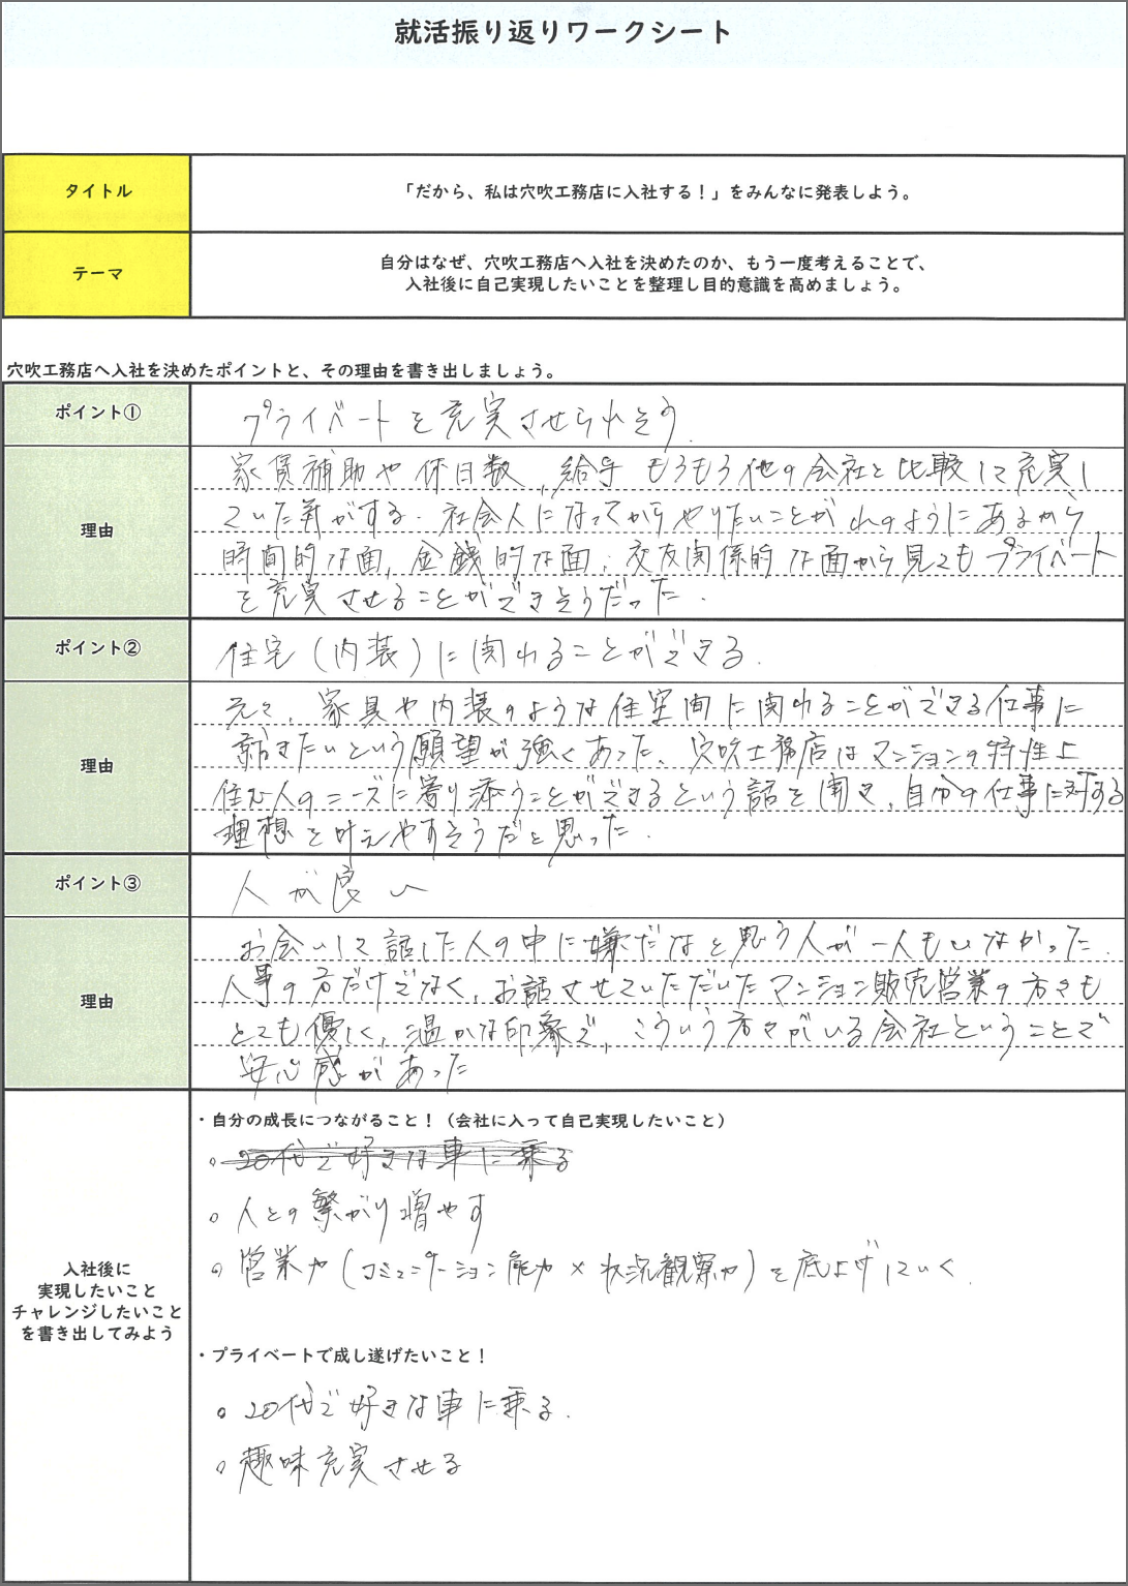 就活振り返りワークシート
タイトル
「だから、私は穴吹工務店に入社する！」をみんなに発表しよう。
テーマ
自分はなぜ、穴吹工務店へ入社を決めたのか、もう一度考えることで、
入社後に自己実現したいことを整理し目的意識を高めましょう。
穴吹工務店へ入社を決めたポイントと、その理由を書き出しましょう。
ポイント①
プライベートを充実させられそう.
理由
家賃補助や休日数、給与もろもろ他の会社と比較して充実し
ていた気がする. 社会人になってからやりたいことが山のようにあるから
時間的な面, 金銭的な面, 交友関係的な面から見てもプライベート
を充実させることができそうだった.
ポイント②
住宅（内装）に関わることができる.
理由
元々、家具や内装のような住空間に関わることができる仕事に
就きたいという願望が強くあった、穴吹工務店はマンションの特性上
住む人のニーズに寄り添うことができるという話を聞き、自分の仕事に対する
理想を叶えやすそうだと思った.
ポイント③
人が良い
理由
お会いして話した人の中に嫌だなと思う人が一人もいなかった.
人事の方だけでなく、お話させていただいたマンション販売営業の方々も
とても優しく、温かな印象で、こういう方々がいる会社ということで
安心感があった
入社後に
実現したいこと
チャレンジしたいこと
を書き出してみよう
・自分の成長につながること！（会社に入って自己実現したいこと）
。20代で好きな車に乗る
。人との繋がり増やす
。営業力（コミュニケーション能力×状況観察力）を底上げしていく.
・プライベートで成し遂げたいこと！
。20代で好きな車に乗る.
。趣味充実させる